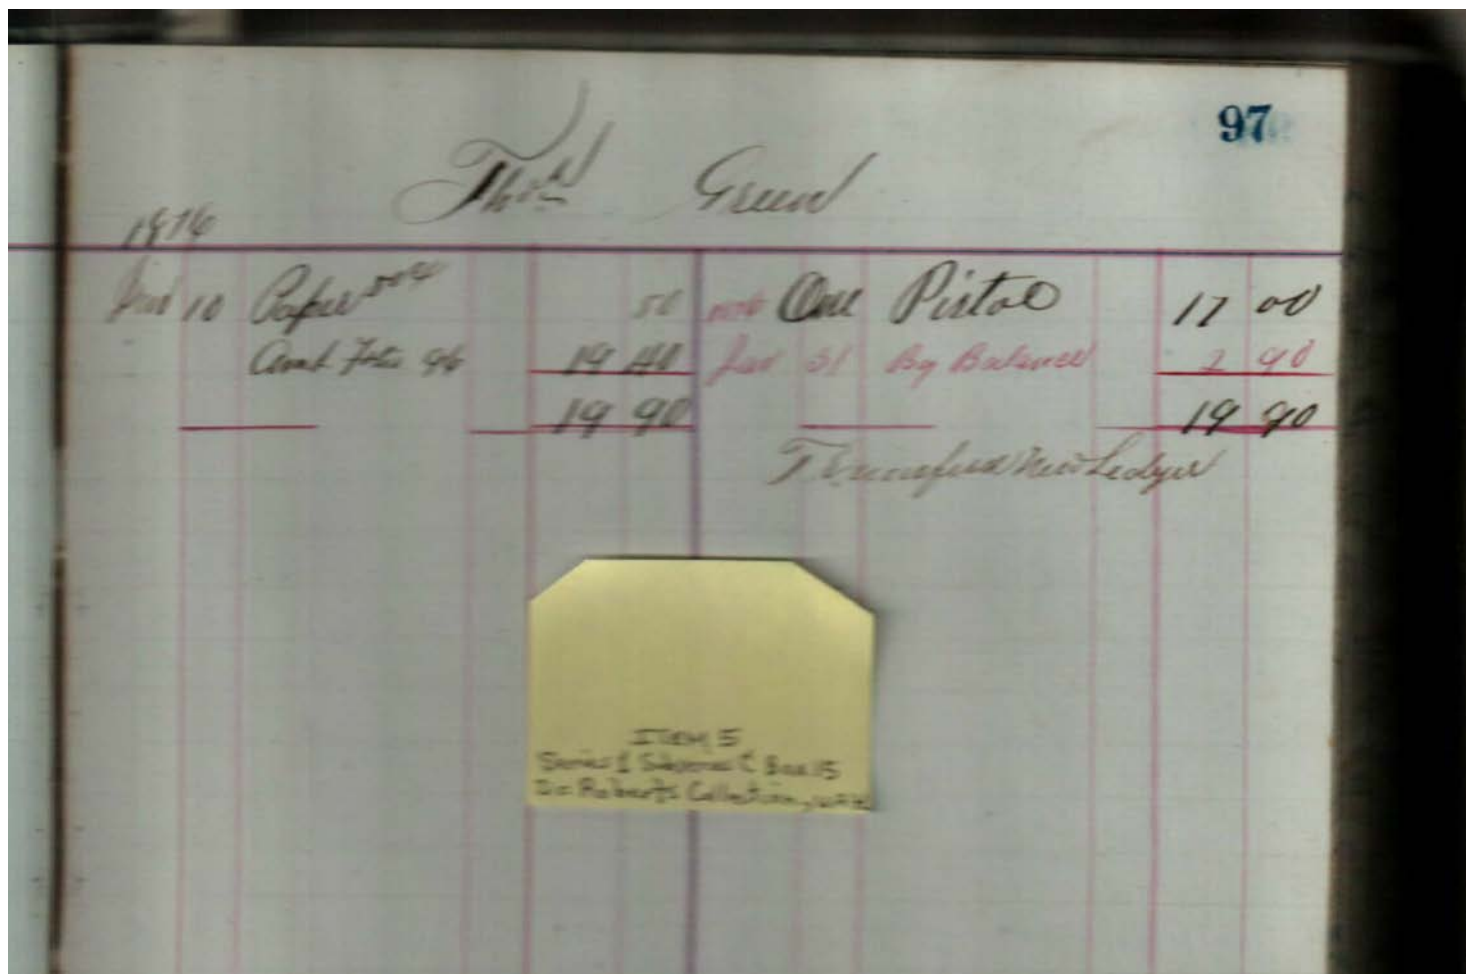 97
Thos Green
1876
10 Paper 50¢ 50
Amt 96 19 40
19 90
1876 One Pistol 17 00
Jan 31 By Balance 2 90
19 90
Transfered New Ledger
ITEM 5
Series 1 Subseries C Box 15
Roberts Collection,